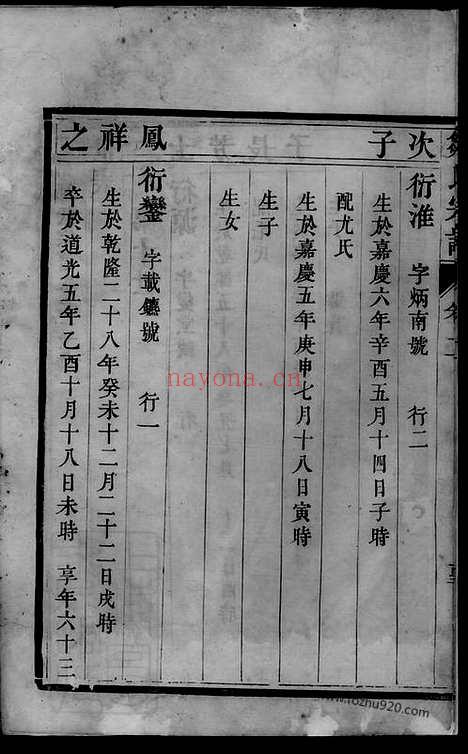 次子
衍淮 字炳南號 行二
生於嘉慶六年辛酉五月十四日子時
配尤氏
生於嘉慶五年庚申七月十八日寅時
生子
生女
鳳祥之
衍鑾 字載鑣號 行一
生於乾隆二十八年癸未十二月二十二日戌時
卒於道光五年乙酉十月十八日未時 享年六十三
nayona.cn
www.fozhu920.com